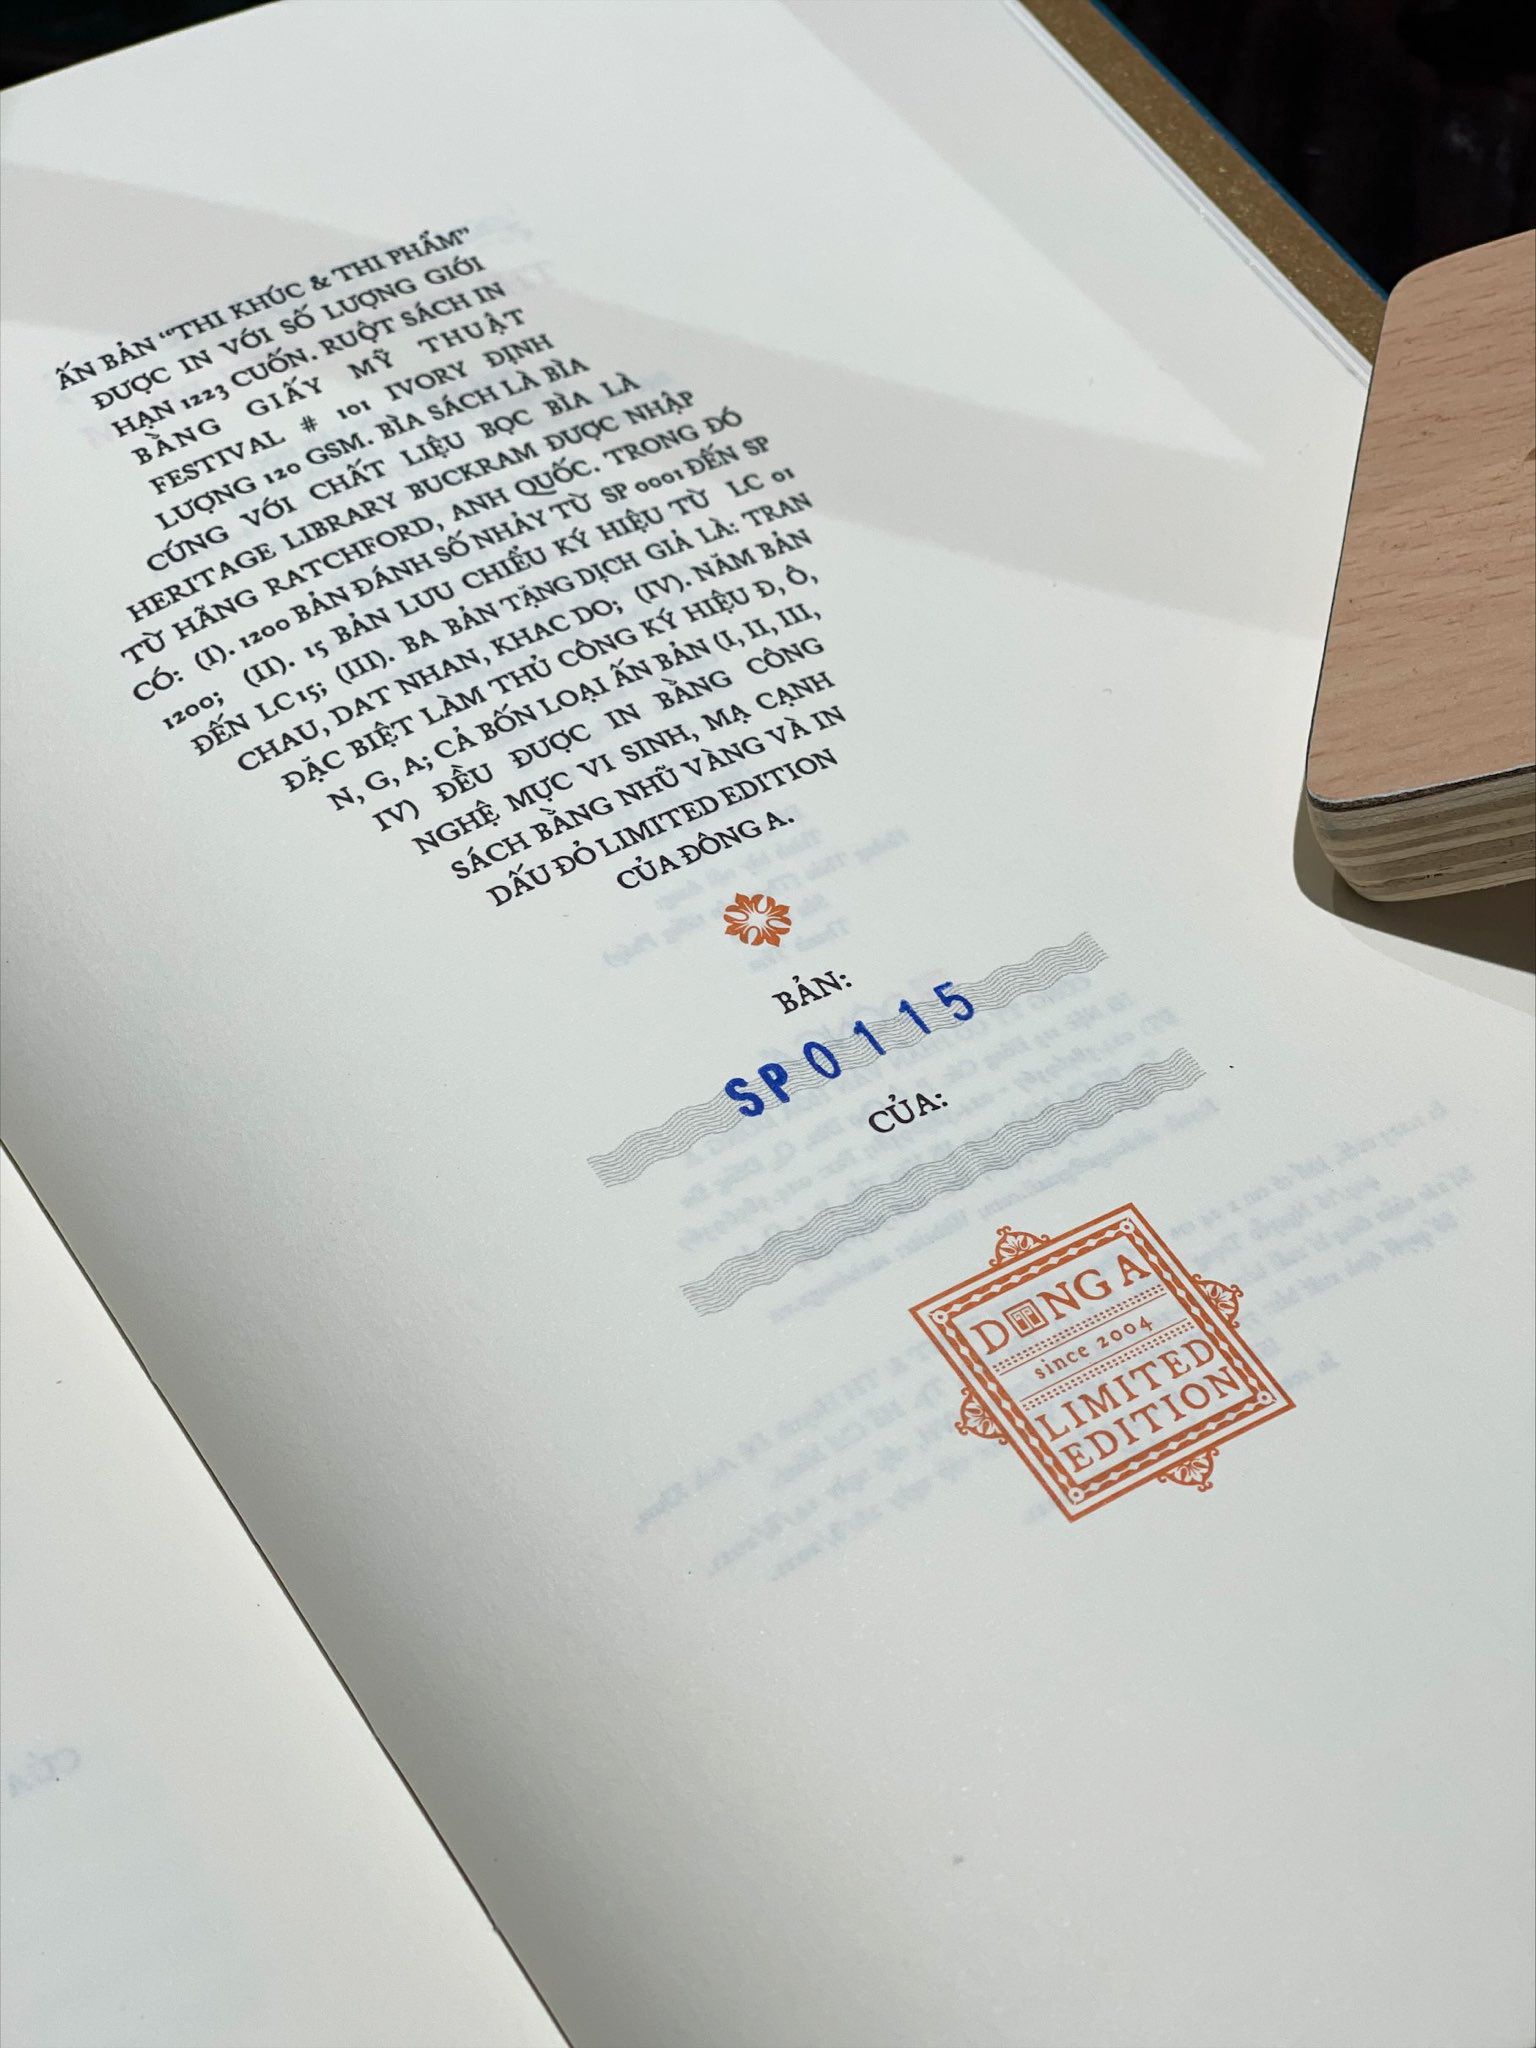 ẤN BẢN “THI KHÚC & THI PHẨM”
ĐƯỢC IN VỚI SỐ LƯỢNG GIỚI
HẠN 1223 CUỐN. RUỘT SÁCH IN
BẰNG GIẤY MỸ THUẬT
FESTIVAL # 101 IVORY ĐỊNH
LƯỢNG 120 GSM. BÌA SÁCH LÀ BÌA
CỨNG VỚI CHẤT LIỆU BỌC BÌA LÀ
HERITAGE LIBRARY BUCKRAM ĐƯỢC NHẬP
TỪ HÃNG RATCHFORD, ANH QUỐC. TRONG ĐÓ
CÓ: (I). 1200 BẢN ĐÁNH SỐ NHẢY TỪ SP 0001 ĐẾN SP
1200; (II). 15 BẢN LƯU CHIỂU KÝ HIỆU TỪ LC 01
ĐẾN LC15; (III). BA BẢN TẶNG DỊCH GIẢ LÀ: TRAN
CHAU, DAT NHAN, KHAC DO; (IV). NĂM BẢN
ĐẶC BIỆT LÀM THỦ CÔNG KÝ HIỆU Đ, Ô,
N, G, A; CẢ BỐN LOẠI ẤN BẢN (I, II, III,
IV) ĐỀU ĐƯỢC IN BẰNG CÔNG
NGHỆ MỰC VI SINH, MẠ CẠNH
SÁCH BẰNG NHŨ VÀNG VÀ IN
DẤU ĐỎ LIMITED EDITION
CỦA ĐÔNG A.
BẢN:
SP0115
CỦA:
ĐÔNG A
since 2004
LIMITED
EDITION